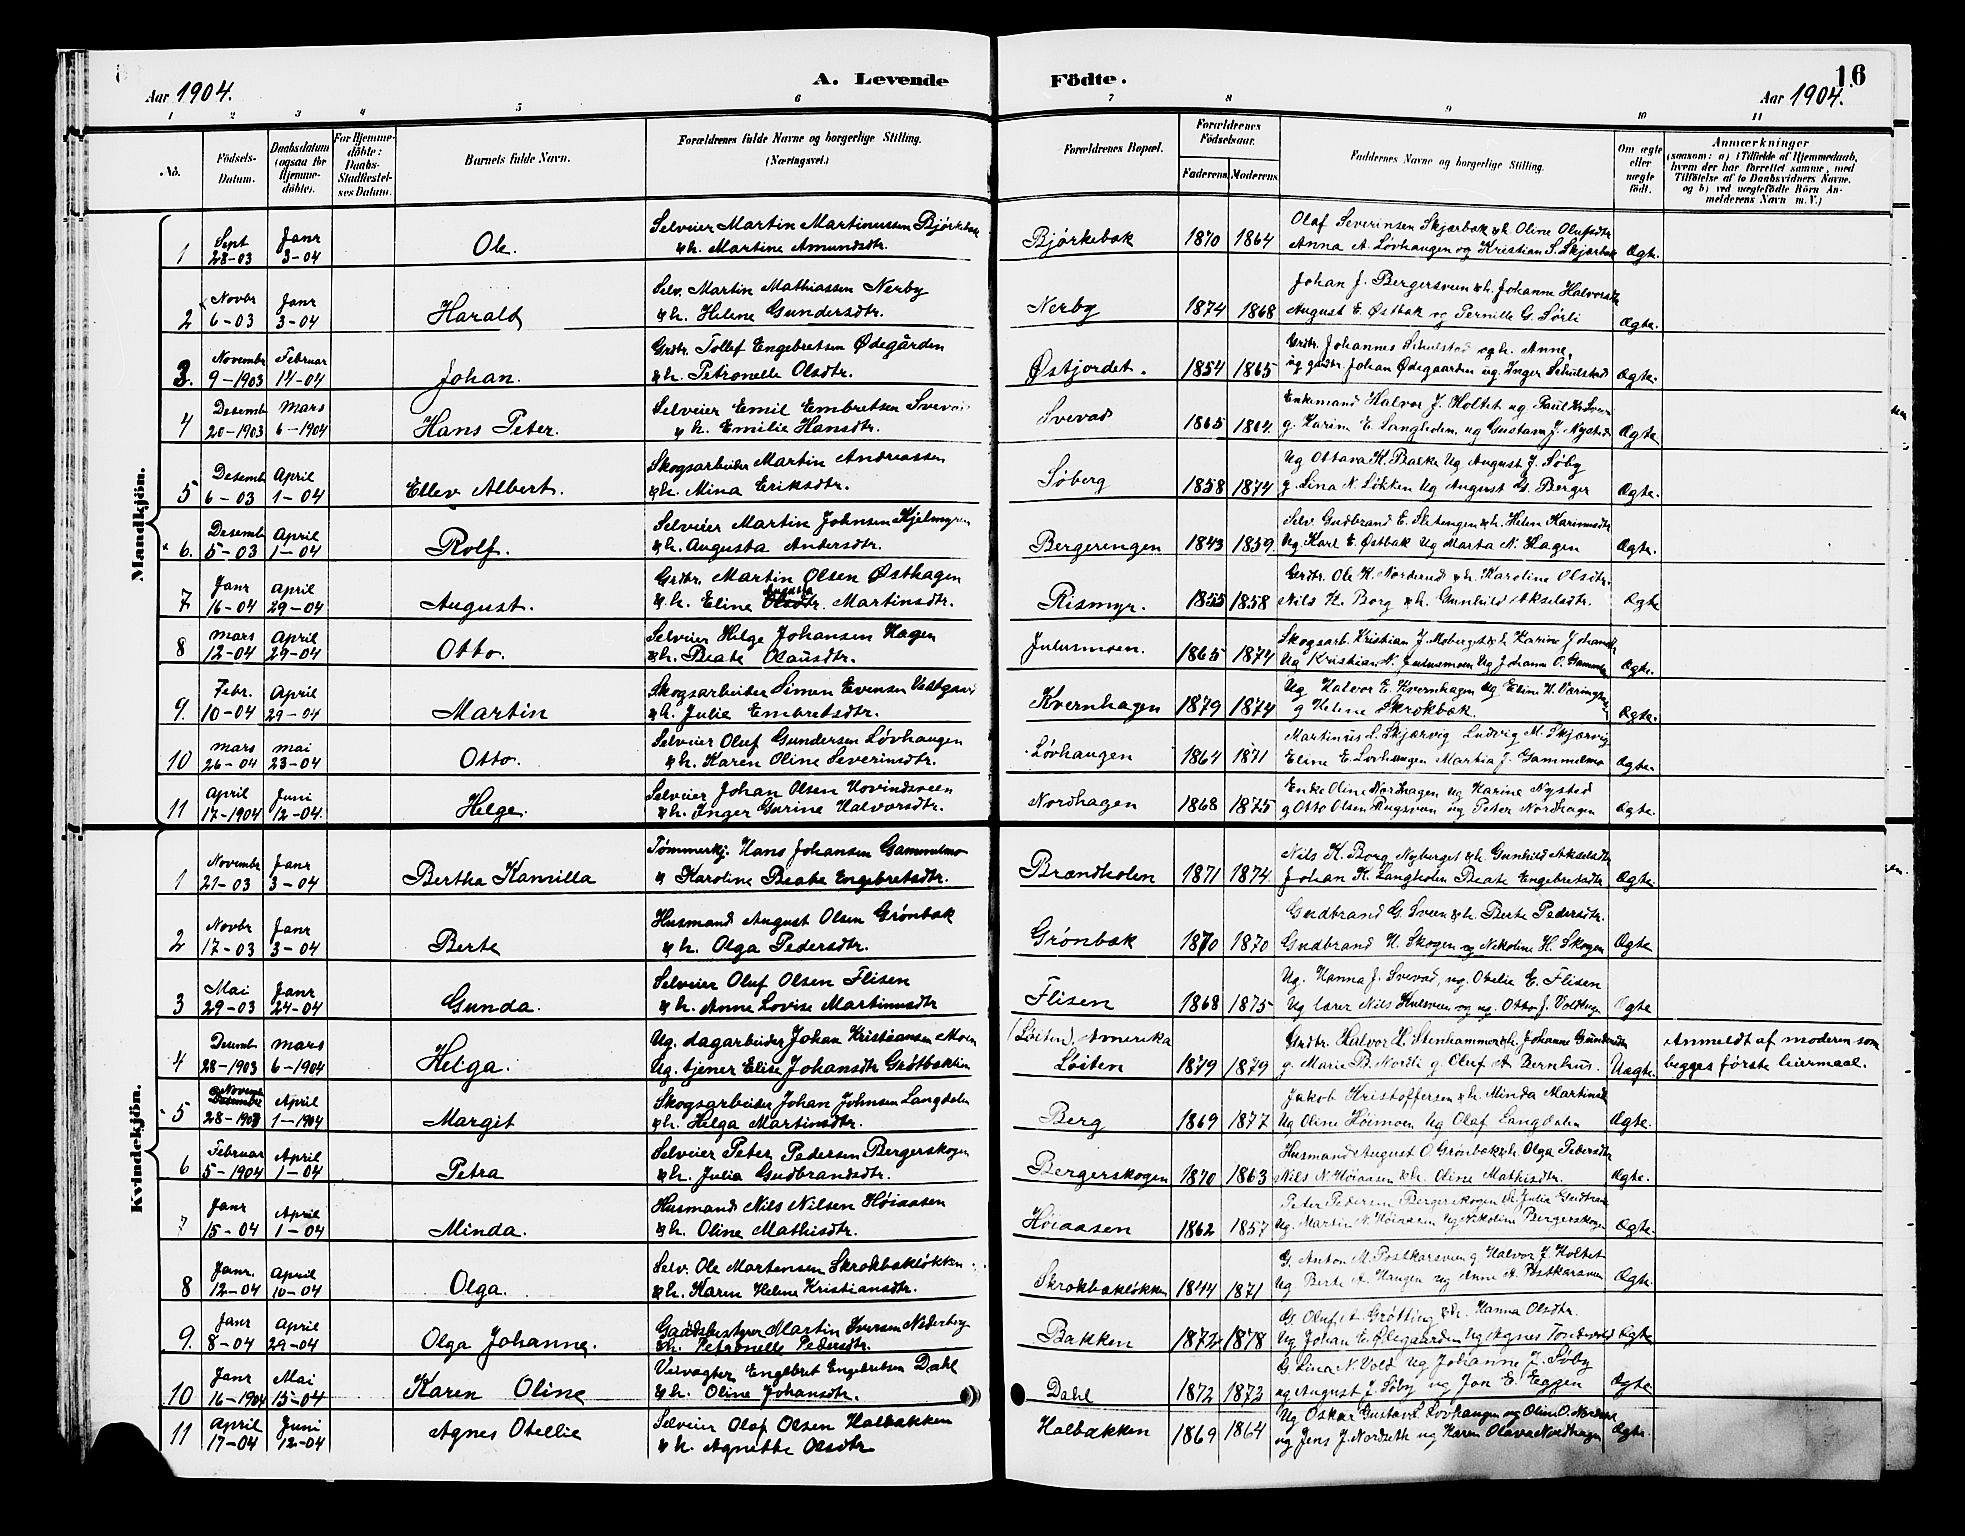 Aar 1904.
A. Levende
Födte.
16
Aar 1904.
1 2 3 4 5 6 7 8 9 10 11
No.
Födsels-
Datum.
Daabsdatum
(ogsaa for
Hjemme-
döbte).
For Hjemme-
döbte:
Daabs-
Stadfæstel-
ses Datum.
Barnets fulde Navn.
Forældrenes fulde Navne og borgerlige Stilling.
(Næringsvei.)
Forældrenes Bopæl.
Forældrenes
Födselsaar.
Faderens Moderens
Faddernes Navne og borgerlige Stilling.
Om ægte
eller
uægte
født.
Anmærkninger
(saasom: a) i Tilfælde af Hjemmedaab,
hvem der har forrettet samme, med
Tilföielse af to Daabsvidners Navne.
og b) ved uægtefödte Börn An-
melderens Navn m.V.)
Mandkjön.
1 Sept 28-03 Janr 3-04 Ole. Selveier Martin Martinussen Bjørkebak
&h. Martine Amundsdtr. Bjørkebak 1870 1864 Olaf Severinsen Skjærbak &h. Oline Olufsdtr
Anna A. Løvhaugen og Kristian S. Skjærbak Ægte.
2 Novbr 6-03 Janr 3-04 Harald Selv. Martin Mathiassen Nerby
&h. Helene Gundersdtr. Nerby 1874 1868 Johan J. Bergersveen &h. Johanne Halvorsdtr
August E. Østbak og Pernille G. Sørli Ægte.
3. Novembr 9-1903 Februar 14-04 Johan. Grdbr. Tollef Engebretsen Ødegården
&h. Petronelle Olsdtr. Østjordet. 1854 1865 Grdbr. Johannes Schulstad og h. Anne,
ug gdsbr. Johan Ødegaarden ug. Inger Schulstad Ægte.
4 Desemb 20-1903 Mars 6-1904 Hans Peter. Selveier Emil Embretsen Svevad
&h. Emilie Hansdtr. Svevad 1865 1864. Enkemand Halvor J. Holtet ug Paul
g. Karine E. Langholen, ug Gustava J. Nystad Ægte
5 Desemb 6-03 April 1-04 Ellev Albert. Skogsarbeider Martin Andreassen
&h. Mina Eriksdtr. Søberg 1858 1874 Ug Ottava H. Bakke Ug August J. Søby
g. Lina N. Løkken Ug August G. Berger Ægte.
6. Desemb 5-03 April 1-04 Rolf. Selveier Martin Johnsen Kjelmyren
&h. Augusta Andersdtr. Bergeringen 1843 1859. Selv. Gudbrand E. Sletengen &h. Helene Karinusdtr
Ug Karl E. Østbak Ug Marta N. Hagen Ægte.
7 Janr 16-04 April 29-04 August. Grdbr. Martin Olsen Østhagen
&h. Eline Augusta Olsdtr. Martinsdtr. Rismyr. 1855 1858 Grdbr. Ole K. Norderud &h. Karoline Olsdtr.
Nils H. Borg &h. Gunhild Akselsdtr. Ægte
8 Mars 12-04 April 29-04 Otto. Selveier Helge Johansen Hagen
&h. Beate Olausdtr. Julusmoen. 1865 1874 Skogsarb. Kristian J. Moberget &h. Karine Johansdtr
Ug Kristian N. Julusmoen Ug Johanne O. Gammelmo Ægte.
9. Febr. 10-04 April 29-04 Martin Skogsarbeider Simen Evensen Vestgaard
&h. Julie Embretsdtr. Kvernhagen 1879 1874 Ug Halvor E. Kvernhagen Ug Eline H.
g Helene Skrokbak. Ægte.
10 Mars 26-04 Mai 23-04 Otto. Selveier Oluf Gundersen Løvhaugen
&h. Karen Oline Severinsdtr. Løvhaugen 1864 1871 Martinus L. Skjærvig Ludvig M. Skjærvig
Eline E. Løvhaugen Martia J. Gammelmo Ægte.
11 April 17-1904 Juni 12-04. Helge. Selveier Johan Olsen Hovindsveen
&h. Inger Gurine Halvorsdtr. Nordhagen 1868 1875 Enke Oline Nordhagen ug Karine Nystad
g Otto Olsen Rugsveen ug Peter Nordhagen Ægte.
Kvindekjön.
1 Novembr 21-03 Janr 3-04 Bertha Kamilla Tømmerkj. Hans Johansen Gammelmo
& Karoline Beate Engebretsdtr. Brændholen 1871 1874. Nils H. Borg Nyberget &h. Gunhild Akselsdtr
Johan K. Langholen Beate Engebretsdtr Ægte.
2 Novbr 17-03 Janr 3-04 Berte Husmand August Olsen Grønbak
&h. Olga Pedersdtr. Grønbak 1870 1870 Gudbrand G. Sveen &h. Berte Pedersdtr.
Gudbrand H. Skogen og Nekoline H. Skogen Ægte
3 Mai 29-03 Janr 24-04 Gunda. Selveier Oluf Olsen Flisen
&h. Anne Lovise Martinusdtr Flisen 1868 1875 Ug. Hanna J. Svevad, ug. Otelie E. Flisen
Ug lærer Nils Kulsveen og ug. Otto J. Voldhagen Ægte
4 Desemb 28-1903 Mars 6-1904 Helga. Ug. dagarbeider Johan Kristiansen Moen
Ug. tjener Elise Johansdtr Grøtbakken (Løiten), Amerika
Løiten 1879 1879 Grdbr. Halvor H. Stenhammer &h. Johanne Gundersdtr
g. Marie B. Nordli g Oluf A Bernhus. Uægte. Anmeldt af moderen som
begges første leiermaal.
5 Novembr Desembr 28-1903 April 1-1904 Margit Skogsarbeider Johan Johnsen Langdalen
&h. Helga Martinsdtr. Berg 1869 1877 Jakob Kristoffersen &h. Minda Martinsdtr
Ug Oline Høimoen Ug Olaf Langdalen Ægte.
6 Februar 5-1904 April 1-04 Petra Selveier Peter Pedersen Bergerskogen
&h. Julia Gudbrandsdtr. Bergerskogen 1870 1863 Husmand August O. Grønbak &h. Olga Pedersdtr
Nils N. Høiaasen &h. Oline Mathisdtr. Ægte.
7 Janr 15-04 April 1-04 Minda. Husmand Nils Nilsen Høiaasen
&h. Oline Mathisdtr. Høiaasen 1862 1857 Peter Pedersen Bergerskogen &h. Julia Gudbrandsd
Ug. Martin N. Høiaasen Ug Nikoline Bergerskogen Ægte.
8 Janr. 12-04 April 10-04 Olga. Selv. Ole Martensen Skrokbakløkken
&h. Karen Helene Kristiansdtr. Skrokbakløkken 1844 1871 G. Anton M. Postkarsveen g Halvor J. Holtet
Ug Berte A. Haugen ug Anne A. Postkarsveen Ægte.
9. Janr 8-04 April 29-04 Olga Johanne. Gaardsbestyrer Martin Iversen Nederberg
&h. Petronelle Pedersdtr. Bakken 1872 1878 G. Oluf A. Grøtting &h. Hanna Olsdtr.
Ug Johan E. Ødegaarden Ug Agnes Tondevold Ægte
10 Janr 16-1904 Mai 15-04 Karen Oline Veivogter Engebret Engebretsen Dahl
&h. Oline Johansdtr. Dahl 1872 1873 G. Lina N. Vold Ug Johanne J. Søby
ug August J. Søby ug Jon E. Eggen Ægte
11 April 17-04 Juni 12-04 Agnes Otellie Selveier Olaf Olsen Halbakken
&h. Agnette Olsdtr Halbakken 1869 1864 Ug Oskar Gustav L. Løvhaugen og Oline O. Nordset
ug Jens J. Nordseth ug Karen Olava Nordhagen Ægte.